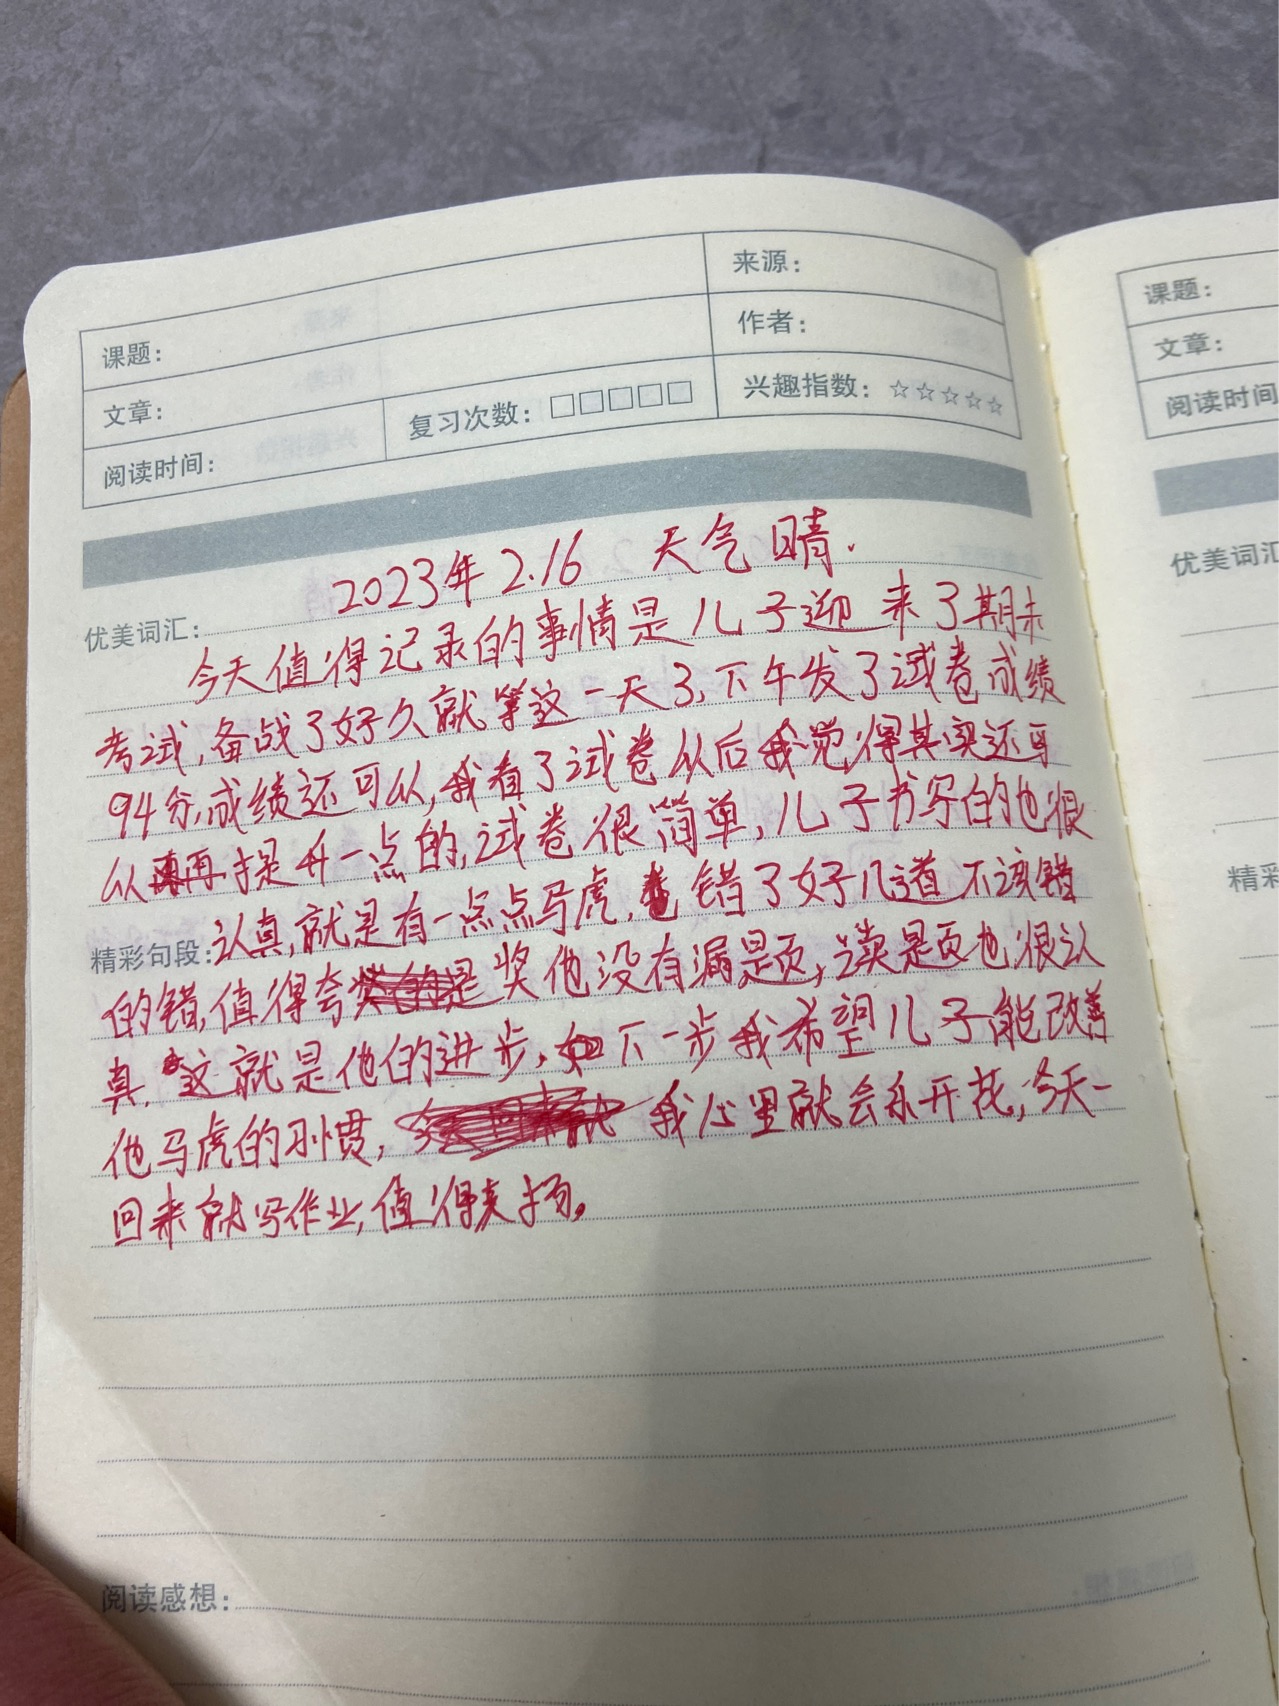 来源：
课题：
作者：
文章：
复习次数：□□□□□
兴趣指数：☆☆☆☆☆
阅读时间：
2023年2.16 天气晴.
优美词汇：
今天值得记录的事情是儿子迎来了期末
考试,备战了好久就等这一天了,下午发了试卷成绩
94分,成绩还可以,我看了试卷以后我觉得其实还可
以再提升一点的,试卷很简单,儿子书写的也很
精彩句段：
认真,就是有一点点马虎,错了好几道不该错
的错,值得夸奖他没有漏题,读题也很认
真,这就是他的进步,下一步我希望儿子能改善
他马虎的习惯,我心里就会乐开花,今天一
回来就写作业,值得表扬。
阅读感想：
课题：
文章：
阅读时间
优美词汇
精彩